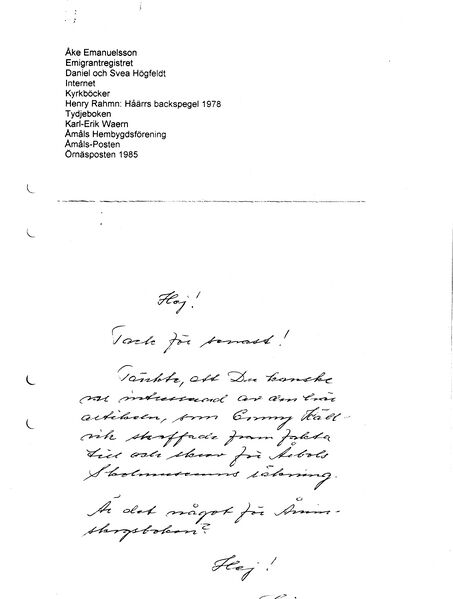 Åke Emanuelsson
Emigrantregistret
Daniel och Svea Högfeldt
Internet
Kyrkböcker
Henry Rahmn: Håärrs backspegel 1978
Tydjeboken
Karl-Erik Waern
Åmåls Hembygdsförening
Åmåls-Posten
Örnäsposten 1985
Hej!
Tack för senast!
Tänkte, att Du kanske
var intresserad av den här
artikeln, som Emmy Käll-
vik skaffade fram fakta
till och skrev för Åsbols
Skolmuseums räkning.
Är det något för Ånim-
skogsboken?
Hej!